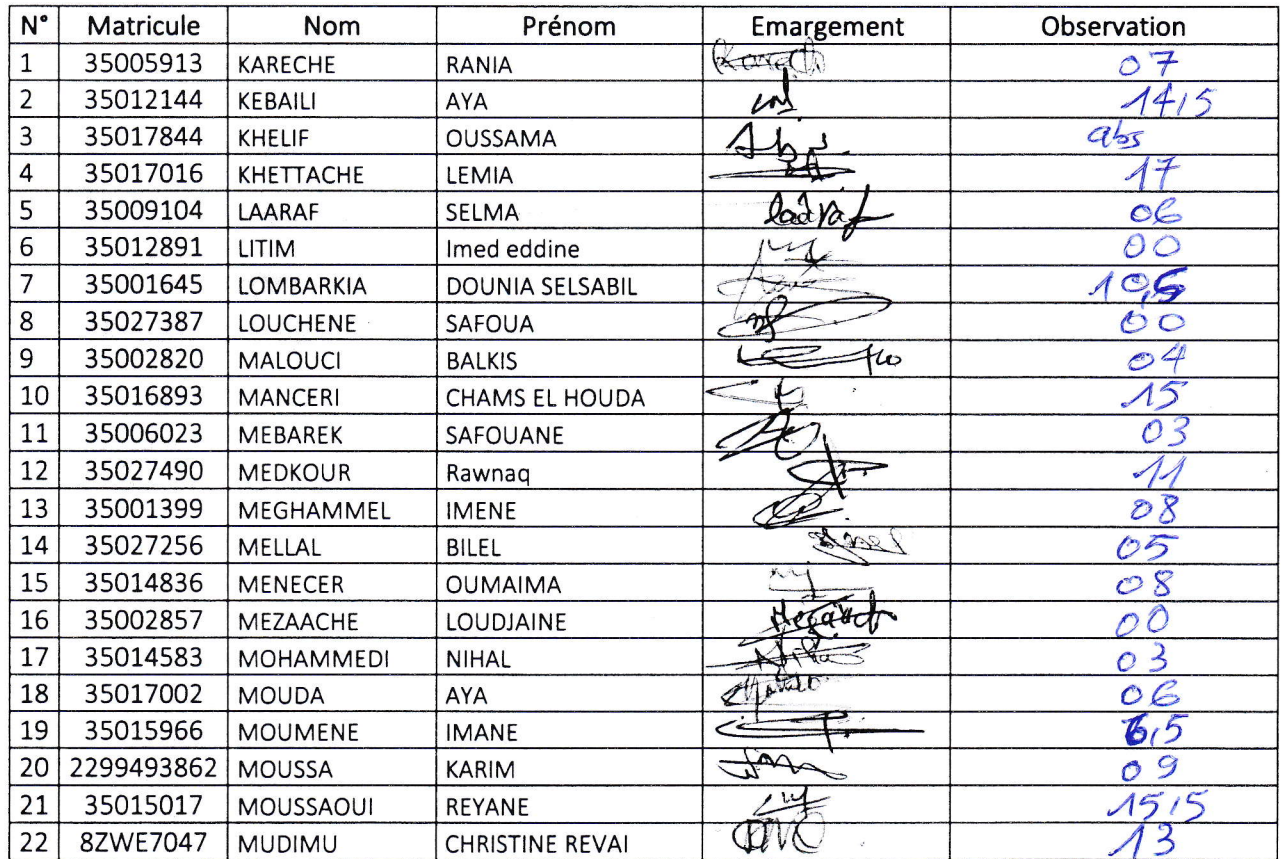 N° Matricule Nom Prénom Emargement Observation
1 35005913 KARECHE RANIA 07
2 35012144 KEBAILI AYA 14,5
3 35017844 KHELIF OUSSAMA Abs. abs
4 35017016 KHETTACHE LEMIA 17
5 35009104 LAARAF SELMA 06
6 35012891 LITIM Imed eddine 00
7 35001645 LOMBARKIA DOUNIA SELSABIL 10,5
8 35027387 LOUCHENE SAFOUA 00
9 35002820 MALOUCI BALKIS 04
10 35016893 MANCERI CHAMS EL HOUDA 15
11 35006023 MEBAREK SAFOUANE 03
12 35027490 MEDKOUR Rawnaq 11
13 35001399 MEGHAMMEL IMENE 08
14 35027256 MELLAL BILEL 05
15 35014836 MENECER OUMAIMA 08
16 35002857 MEZAACHE LOUDJAINE 00
17 35014583 MOHAMMEDI NIHAL 03
18 35017002 MOUDA AYA 06
19 35015966 MOUMENE IMANE 6,5
20 2299493862 MOUSSA KARIM 09
21 35015017 MOUSSAOUI REYANE 15,5
22 8ZWE7047 MUDIMU CHRISTINE REVAI 13